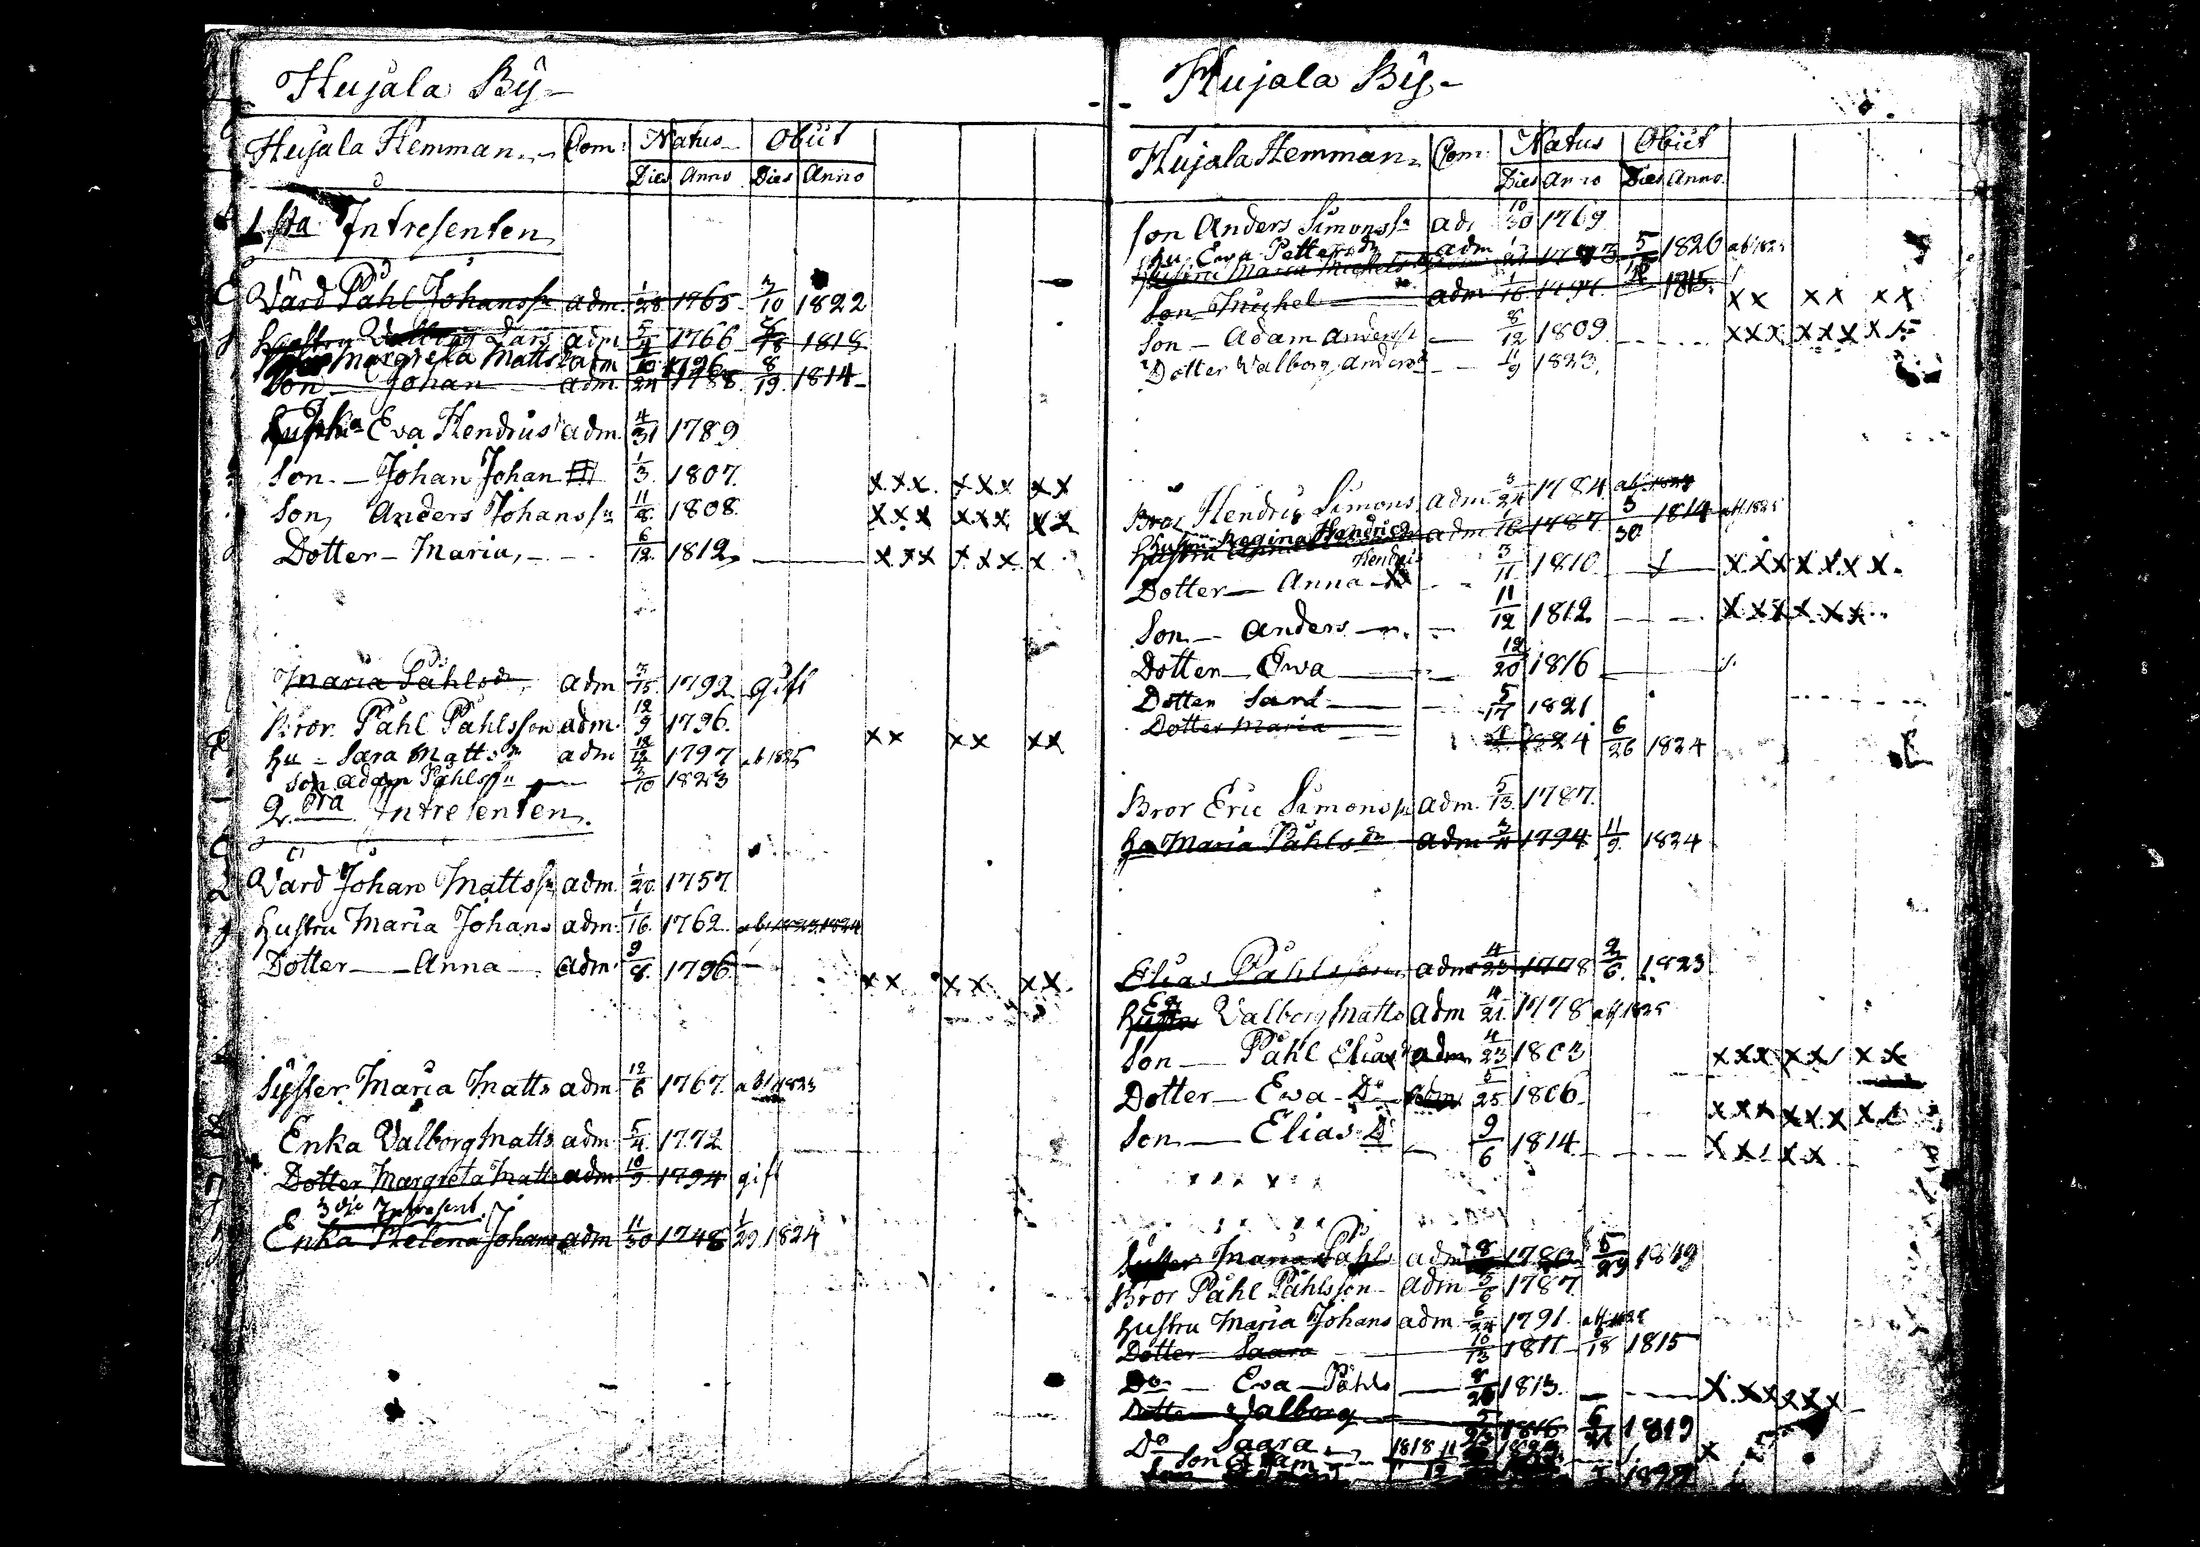 Hujala By -
Hujala Hemman. - Com: Natus Obiit
Dies Anno Dies Anno
1 sta Intresenten
Värd Påhl Johanss. adm. 1/28 1765 3/10 1822
Hustru Valborg Lars adm 5/4 1766 1818
Margreta Matts adm 1796
Son Johan adm 24 1788. 8/19. 1814 -
Eva Hendrics adm. 4/31 1789
Son. - Johan Johan 1/3 1807. xxx xxx xx
Son, Anders Johanss. 11/8 1808. xxx xxx xx
Dotter - Maria, - - 6/12 1812, xxx xxx x
Maria Påhlsdr, adm 3/15 1792 gift
Bror. Påhl Påhlsson adm. 12/9 1796. xx xx xx
Hu - Sara Mattsdr adm 12/12 1797 ab 1825
Son Adam Påhlss. - 3/10 1823
2. dra Intresenten.
Värd Johan Mattss. adm. 1/20. 1757.
Hustru Maria Johans adm. 1/16. 1762.
Dotter - Anna - adm. 9/8. 1796 xx xx xx
Syster Maria Matts adm 12/6 1767.
Enka Valborg Matts adm 5/4 1772
Dotter Margreta Matts adm 10/9 1794 gift
3 die Intresent.
Enka Helena Johans adm 11/30 1748 1/29. 1824
Hujala By. -
Hujala Hemman. Com: Natus Obiit
Dies Anno Dies Anno.
Son Anders Simonss. ad. 10/30 1769
Hu. Ewa Pettersdr adm 5 1826
Son Michel adm 1/16 1815. xx xx xx
Son - Adam Anderss. - 8/12 1809 xxx xxx xx
Dotter Valborg Andersdr - - 11/9 1823.
Bror Hendric Simons. adm. 3/24 1784
Hustru Regina Hendricsdr adm 16 1787 3/30 1814 abf. 1825
Dotter - Anna Hendrics 3/11 1810 xxx xxx x.
Son - Anders 11/12 1812. xxx xxx
Dotter - Ewa 12/20 1816
Dotter Sara 5/17 1821
Dotter Maria 1824 6/26 1824
Bror Eric Simonss. adm. 5/13. 1787.
Hu Maria Påhlsdr adm 1794 11/9. 1824
Elias Påhlsson adm 4/23 1778 2/6. 1823
Valborg Matts adm 4/21 1778 abf 1825
Son - Påhl Elias adm 4/23 1803 xxx xx xx
Dotter - Ewa - Do adm 5/25 1806 xxx xxx xx
Son - Elias Do 9/6 1814 xxx xx
Syster Maria Påhls adm 8 5/29
Bror Påhl Påhlsson - adm 5/6 1787
Hustru Maria Johans adm 6/24 1791.
Dotter Saara 10/13 1811 18 1815
Do - Eva - Påhls 8 1813. x xx xxx
Dotter Valborg 5 1816 6/21 1819
Do Saara 1818 11
Son Adam